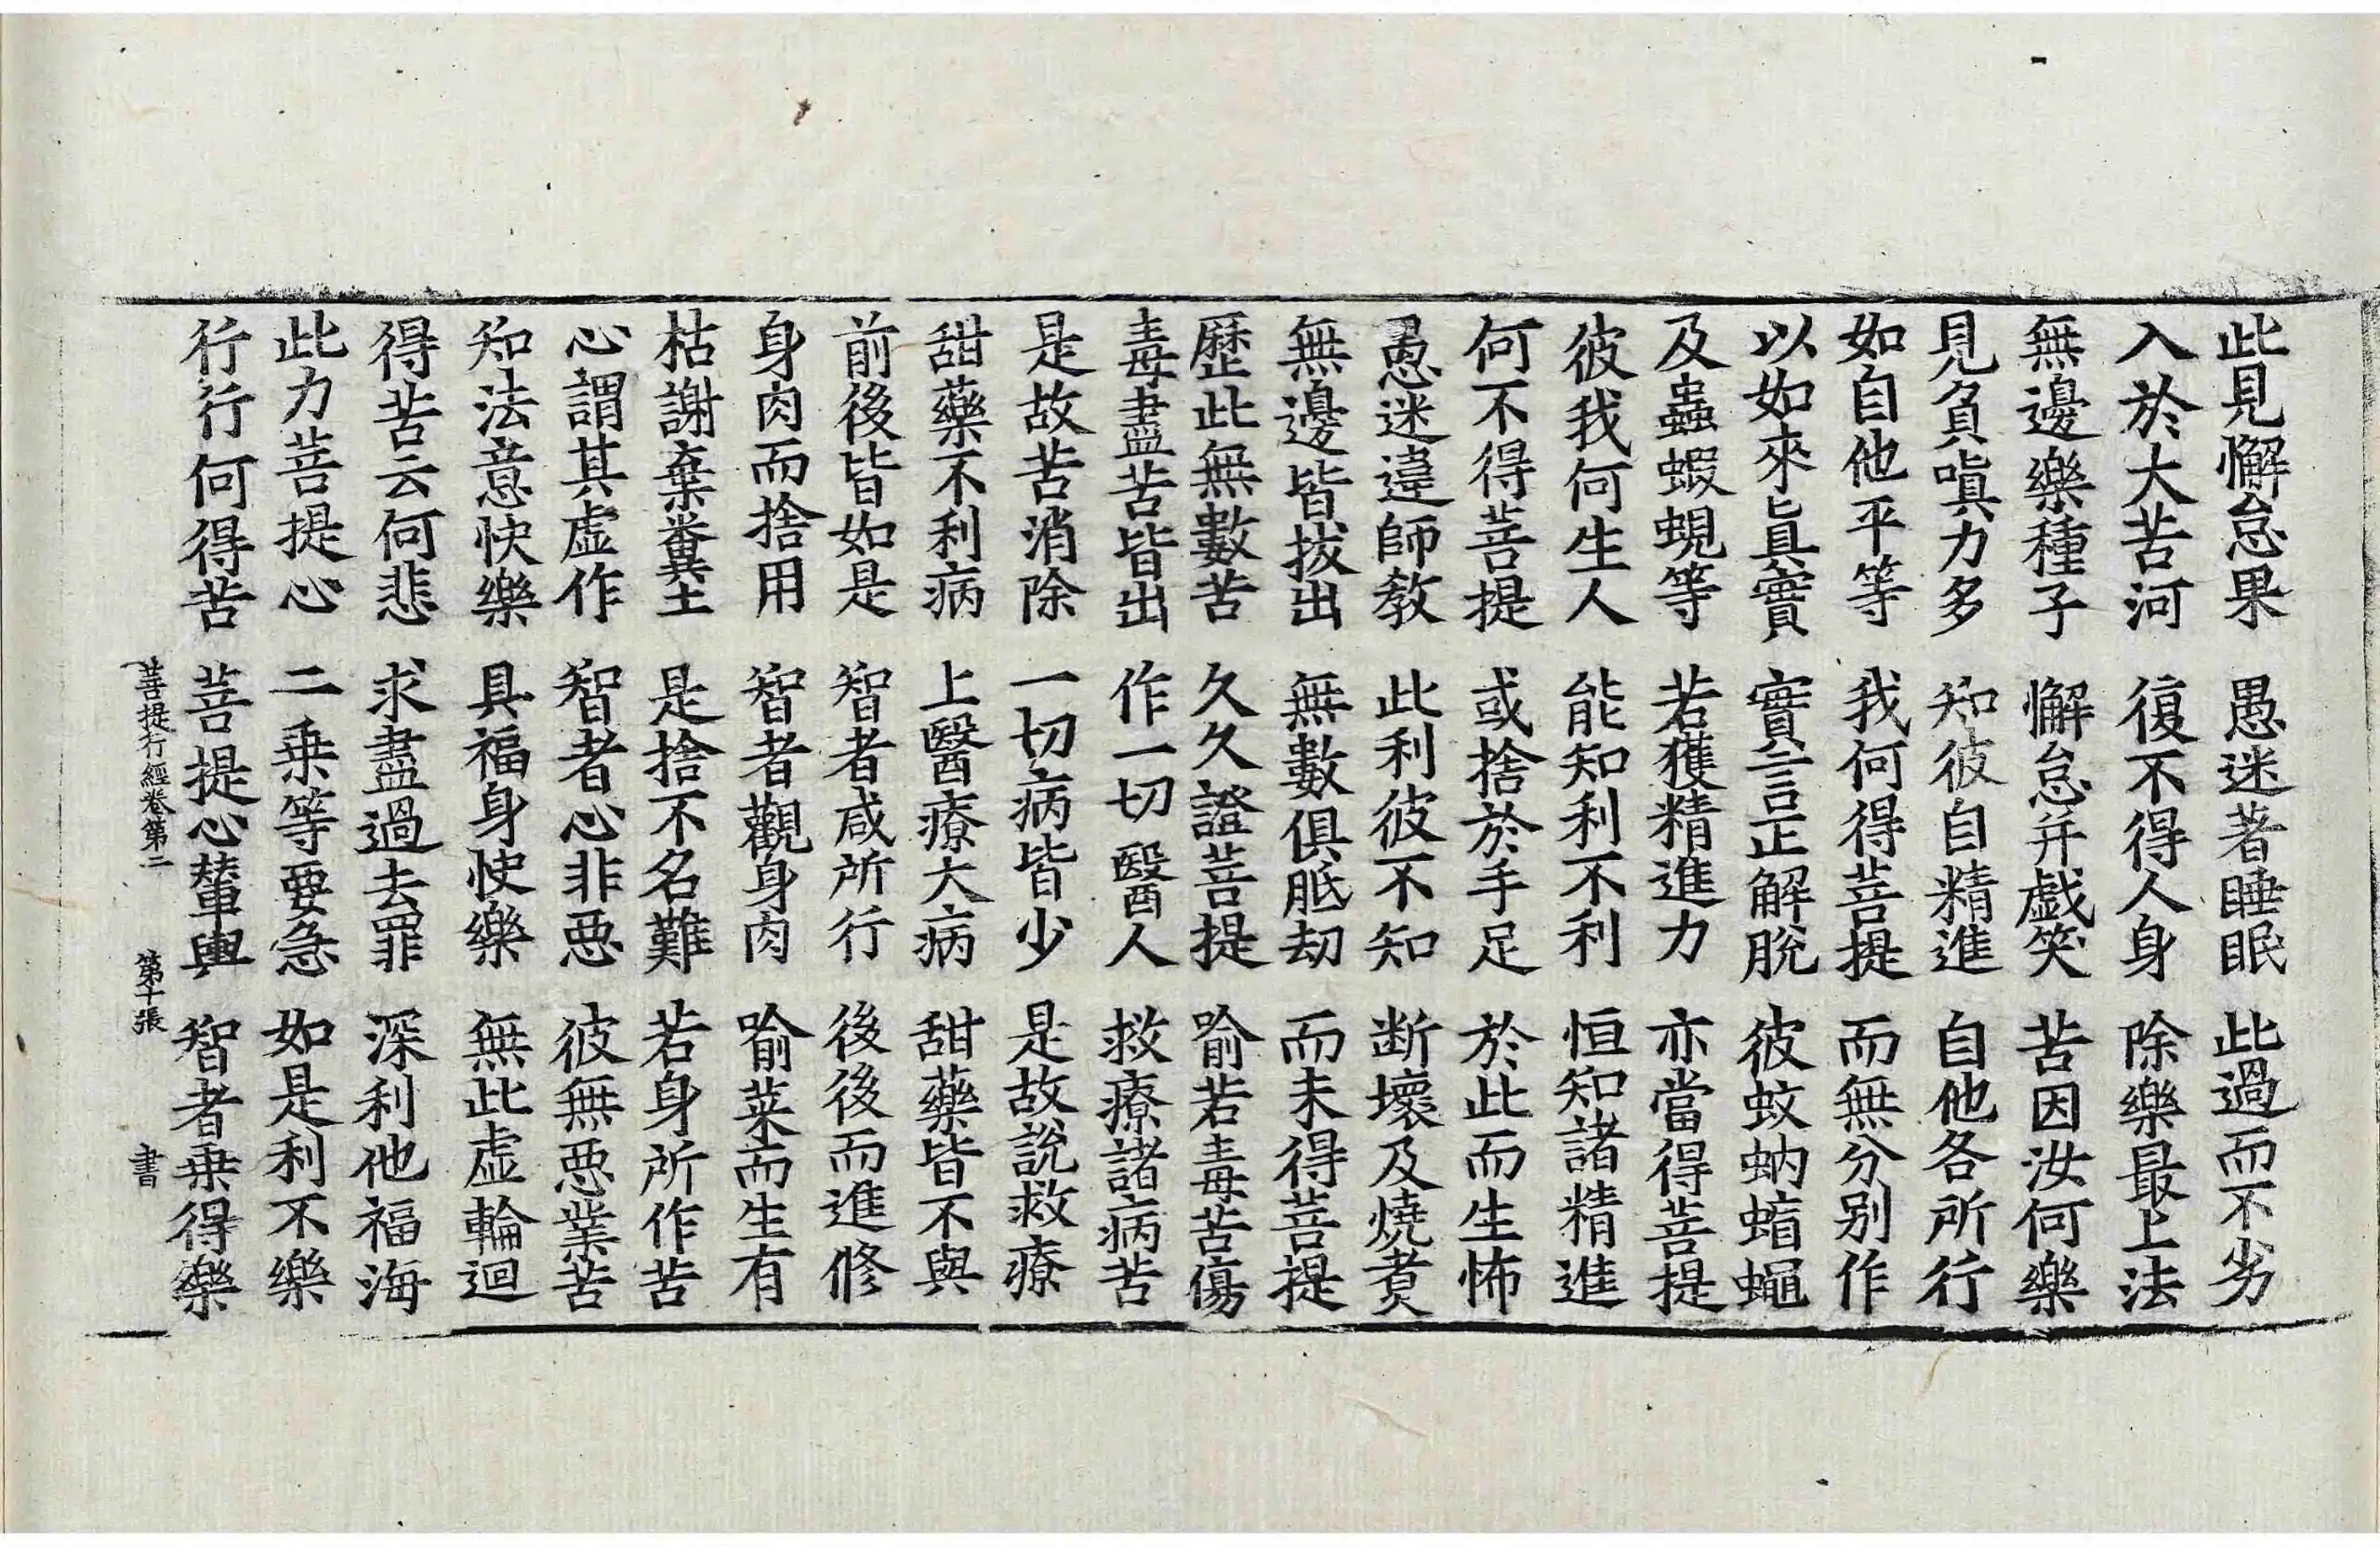 此見懈怠果　愚迷著睡眠　此過而不劣
入於大苦河　復不得人身　除樂最上法
無邊樂種子　懈怠并戯笑　苦因汝何樂
見負嗔力多　知彼自精進　自他各所行
如自他平等　我何得菩提　而無分別作
以如來眞實　實言正解脫　彼蚊蚋蝱蠅
及蟲蝦蜆等　若獲精進力　亦當得菩提
彼我何生人　能知利不利　恒知諸精進
何不得菩提　或捨於手足　於此而生怖
愚迷違師敎　此利彼不知　断壞及燒煑
無邊皆拔出　無數俱胝劫　而未得菩提
歷此無數苦　久久證菩提　喻若毒苦傷
毒盡苦皆出　作一切醫人　救療諸病苦
是故苦消除　一切病皆少　是故說救療
甜藥不利病　上醫療大病　甜藥皆不與
前後皆如是　智者咸所行　後後而進修
身肉而捨用　智者觀身肉　喻菜而生有
枯謝棄糞土　是捨不名難　若身所作苦
心謂其虛作　智者心非惡　彼無惡業苦
知法意快樂　具福身快樂　無此虛輪迴
得苦云何悲　求盡過去罪　深利他福海
此力菩提心　二乘等要急　如是利不樂
行行何得苦　菩提心輦輿　智者乘得樂
菩提行經卷第二　第十張　書